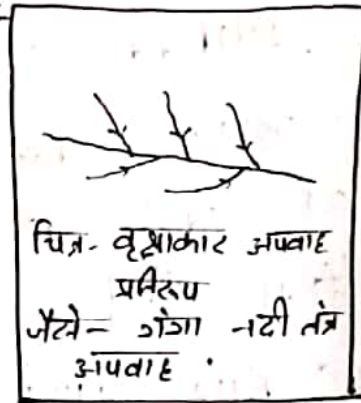 चित्र- वृक्षाकार अपवाह
प्रतिरूप
जैसे- गंगा नदी तंत्र
अपवाह .